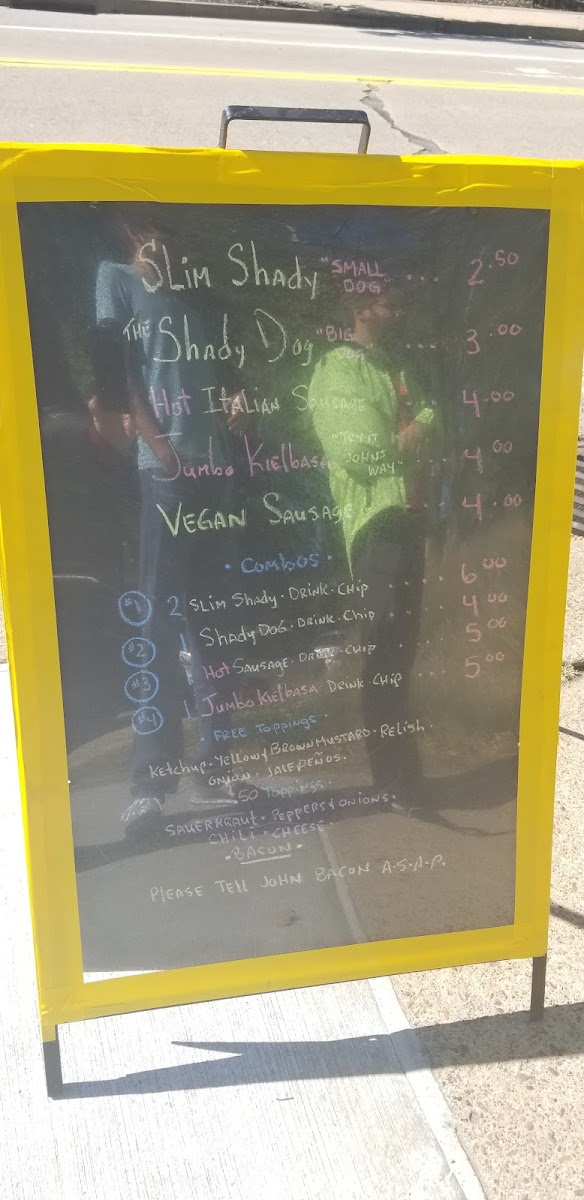 SLim Shady "SMALL DOG" ... 2.50
THE Shady Dog "BIG DOG" .... 3.00
Hot Italian Sausage ... 4.00
Jumbo Kielbasa "TRY IT JOHNS WAY" .... 4.00
VEGAN SAUSAGE .. 4.00
• COMBOS •
#1 2 SLIM SHADY • DRINK • CHIP .... 6.00
#2 1 SHADY DOG • DRINK • Chip .... 4.00
#3 1 Hot SAUSAGE • DRINK • CHIP . 5.00
#4 1 Jumbo Kielbasa • DRINK • CHIP ... 5.00
• FREE TOPPINGS •
Ketchup • Yellow & BROWN MUSTARD • Relish •
ONION • JALEPEÑOS •
$.50 TOPPINGS •
SAUERKRAUT • PEPPERS & ONIONS •
CHILI • CHEESE •
• BACON •
PlEASE TEll JOHN BACON A.S.A.P.